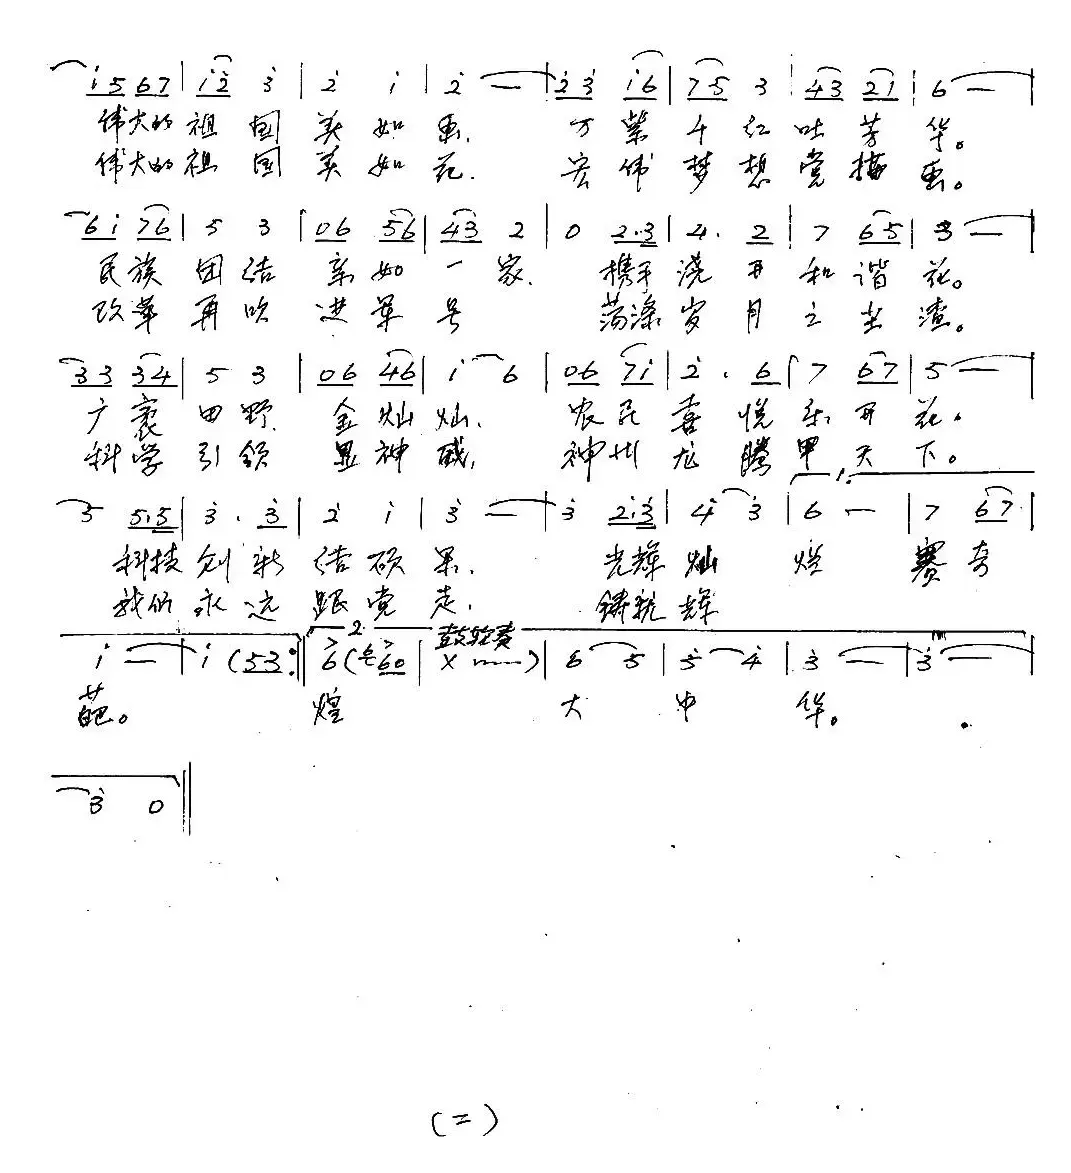 i 5 6 7 | i 2 3 | 2 i | 2 — | 2 3 i 6 | 7 5 3 | 4 3 2 i | 6 — |
伟大的祖国美如画. 万紫千红吐芳华。
伟大的祖国美如花. 宏伟梦想党描画。
6 i 7 6 | 5 3 | 0 6 5 6 | 4 3 2 | 0 2·3 | 4· 2 | 7 6 5 | 3 — |
民族团结亲如一家. 携手浇开和谐花。
改革再吹进军号 荡涤岁月之尘渣。
3 3 3 4 | 5 3 | 0 6 4 6 | i 6 | 0 6 7 i | 2· 6 | 7 6 7 | 5 — |
广袤田野金灿灿. 农民喜悦乐开花。
科学引领显神威, 神州龙腾甲天下。
1.
5 5·5 | 3· 3 | 2 i | 3 — | 3 2·3 | 4 3 | 6 — | 7 6 7
科技创新结硕果. 光辉灿烂赛奇
我们永远跟党走. 铸就辉
2. 鼓独奏
i — | i (5 3 :| 6 (6 0 | X ——) | 6 5 | 5 4 | 3 — | 3 — |
葩。 煌 大中华。
3 0 ||
(二)